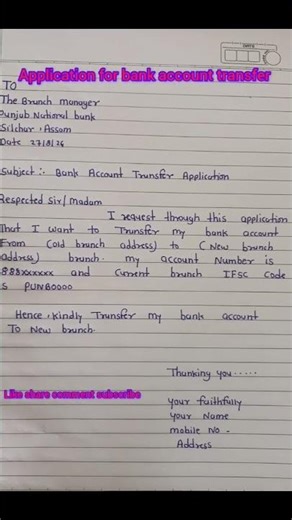 Application for bank account transfer
TO
The Brunch manager
Punjub National bank
Silchur, Assam
Date 27/8/26
Subject:- Bank Account Transfer Application
Respected Sir/madam
I request through this application
That I want to Transfer my bank account
From (old brunch address) to (New brunch
address) brunch. my account Number is
888xxxxxx and Current brunch IFSC Code
is PUNB0000
Hence, Kindly Transfer my bank account
To New brunch.
Thanking you.....
Like share comment subscribe
your fuithfully
your Name
mobile No -
Address